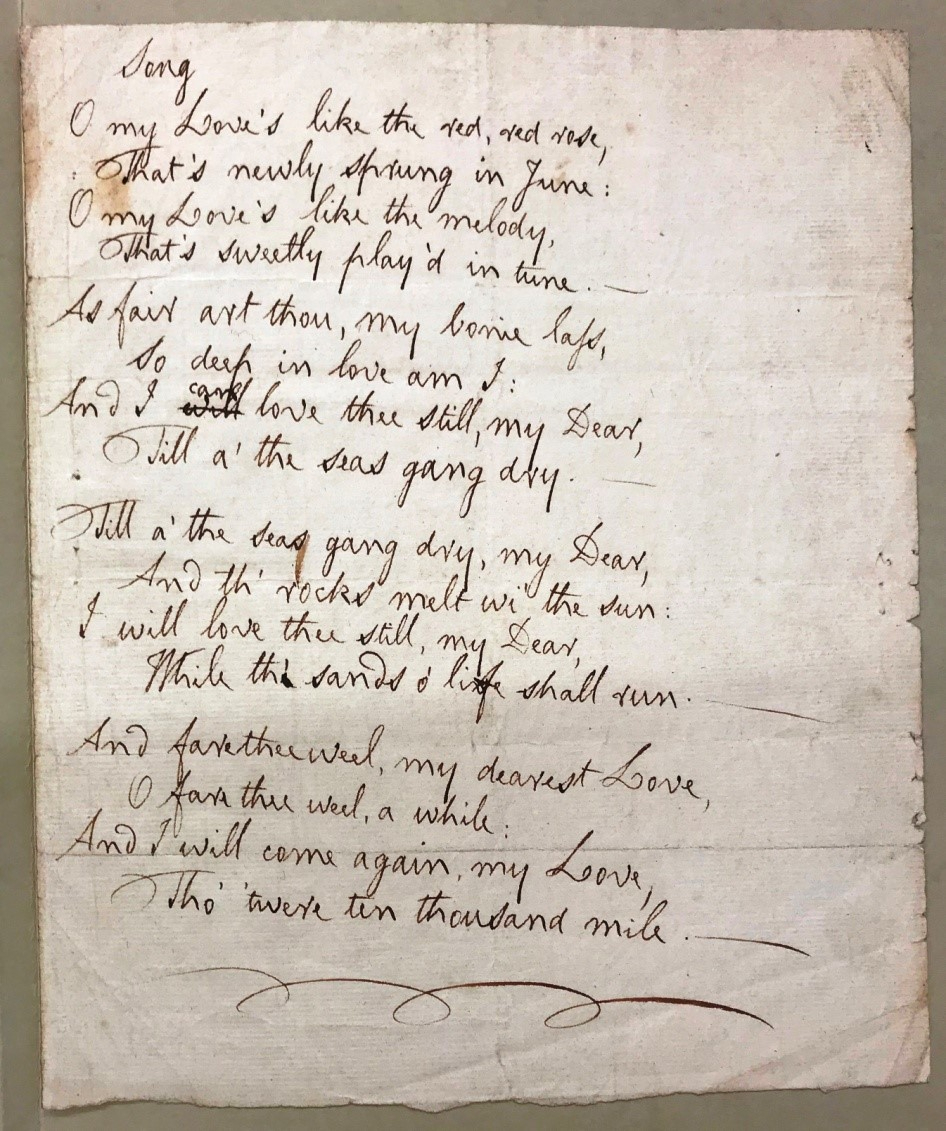 Song
O my Love's like the red, red rose,
That's newly sprung in June:
O my Love's like the melody,
That's sweetly play'd in tune. —
As fair art thou, my bonie laſs,
So deep in love am I:
And I can love thee still, my Dear,
Till a' the seas gang dry. —
Till a' the seas gang dry, my Dear,
And th' rocks melt wi' the sun:
I will love thee still, my Dear,
While the sands o' life shall run. —
And fare thee weel, my dearest Love,
O fare thee weel, a while:
And I will come again, my Love,
Tho' 'twere ten thousand mile. —